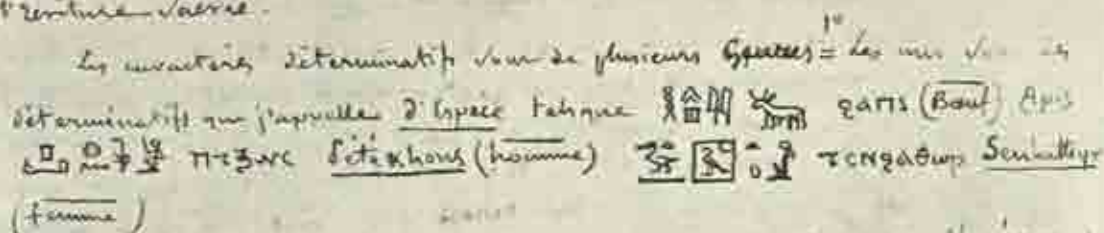 l'écriture sacrée.
Les caractères déterminatifs sont de plusieurs Genres = 1° Les uns sont des
déterminatifs que j'appelle d'Espèce tels que ϩⲁⲡⲓ (Bœuf) Apis
Pétékhons (homme) ⲧⲥⲛϩⲁⲑⲱⲣ
(femme)